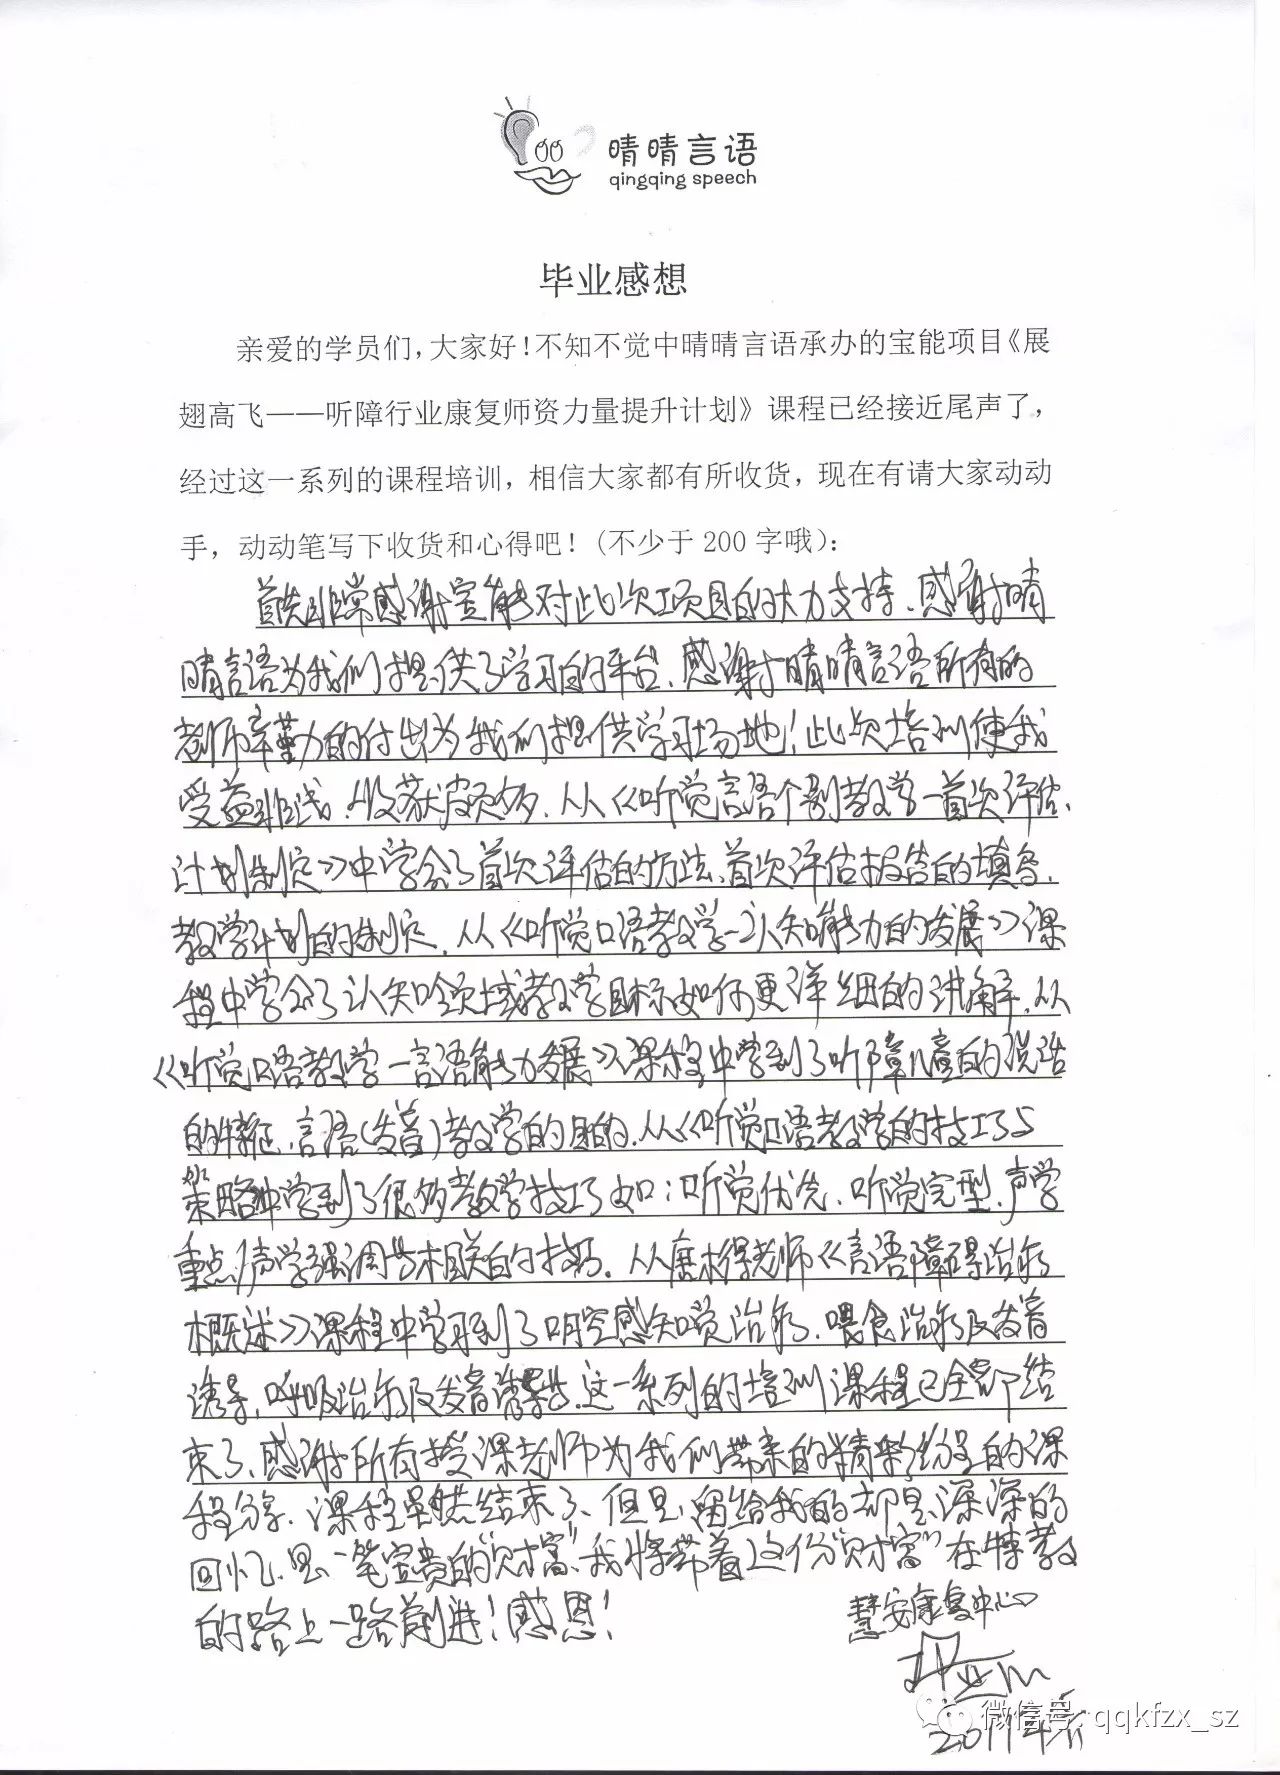 晴晴言语
qingqing speech
毕业感想
亲爱的学员们，大家好！不知不觉中晴晴言语承办的宝能项目《展
翅高飞——听障行业康复师资力量提升计划》课程已经接近尾声了，
经过这一系列的课程培训，相信大家都有所收货，现在有请大家动动
手，动动笔写下收货和心得吧！（不少于200字哦）：
首先非常感谢宝能对此次项目的大力支持、感谢晴
晴言语为我们提供了学习的平台、感谢晴晴言语所有的
老师辛勤的付出为我们提供学习场地！此次培训使我
受益匪浅、收获颇多、从《听觉言语个别教学-首次评估、
计划制定》中学会了首次评估的方法、首次评估报告的填写、
教学计划的制定、从《听觉口语教学-认知能力的发展》课
程中学会了认知领域教学目标如何更详细的讲解、从
《听觉口语教学-言语能力发展》课程中学到了听障儿童的说话
的特征、言语（发音）教学的目的、从《听觉口语教学的技巧与
策略中学到了很多教学技巧如：听觉优先、听觉完型、声学
重点、声学强调等相关的技巧。从唐木得老师《言语障碍治疗
概述》课程中学习到了口腔感知觉治疗、喂食治疗及发音
诱导、呼吸治疗及发音诱导等、这一系列的培训课程已全部结
束了、感谢所有授课老师为我们带来的精彩纷呈的课
程分享、课程虽然结束了、但是、留给我的却是深深的
回忆、是一笔宝贵的“财富”、我将带着这份“财富”在特教
的路上一路前进！感恩！
慧安康复中心
微信号: qqkfzx_sz